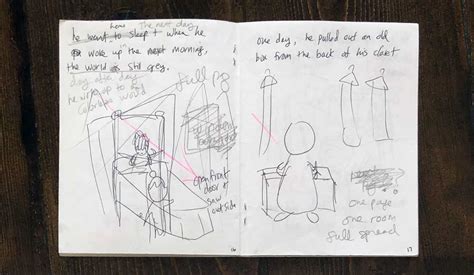 here The next day
he went to sleep & when he
woke up the next morning,
the world is still grey.
day after day
he woke up to my
colorless world
full pg
open front
door &
saw
outside
16
one day, he pulled out an old
box from the back of his closet
one page
one room
full spread
17